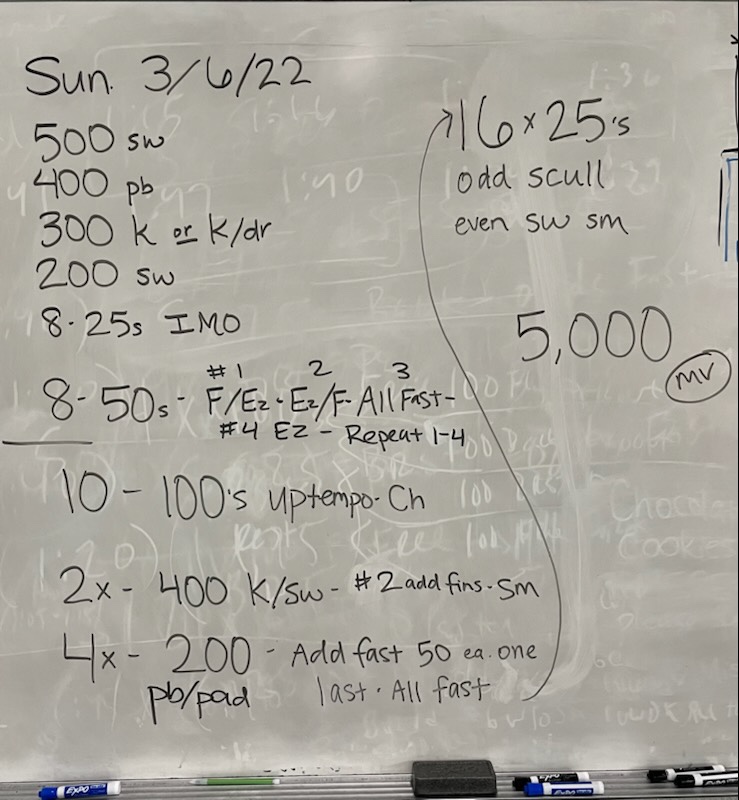 Sun. 3/6/22
500 sw
400 pb
300 k or k/dr
200 sw
8-25s IMO
#1 2 3
8-50s- F/Ez - Ez/F- All Fast-
#4 EZ - Repeat 1-4
10 - 100's uptempo- Ch
2x - 400 K/sw- #2 add fins - sm
4x - 200 - Add fast 50 ea. one
pb/pad last - All fast
16 x 25's
odd scull
even sw sm
5,000
MV
EXPO
EXPO
EXPO